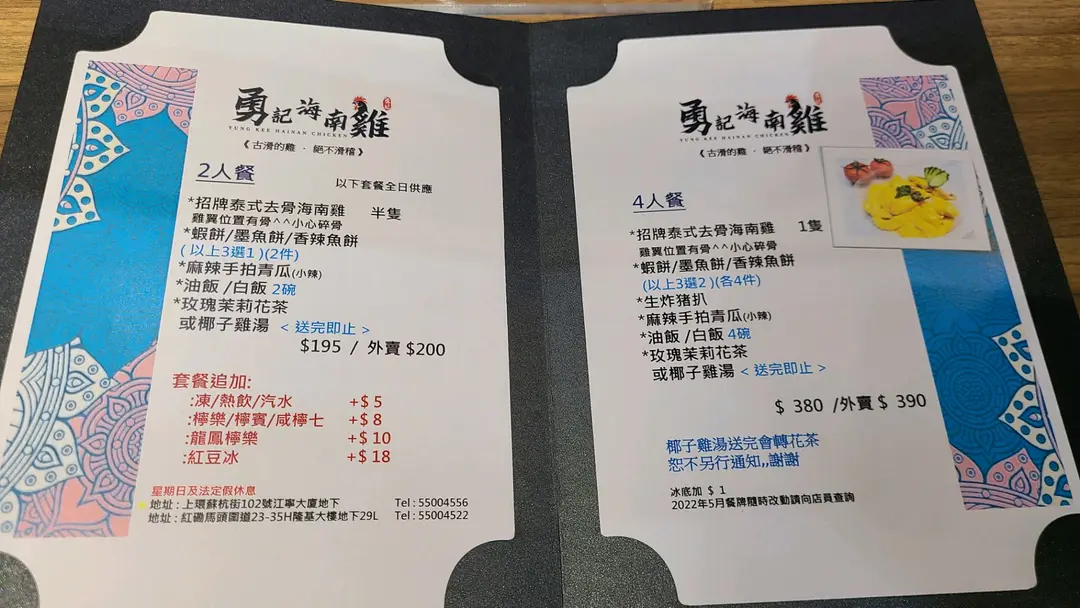 勇記海南雞
YUNG KEE HAINAN CHICKEN
《古滑的雞 · 絕不滑稽》
2人餐
以下套餐全日供應
*招牌泰式去骨海南雞 半隻
雞翼位置有骨^^小心碎骨
*蝦餅/墨魚餅/香辣魚餅
(以上3選1)(2件)
*麻辣手拍青瓜(小辣)
*油飯 /白飯 2碗
*玫瑰茉莉花茶
或椰子雞湯 < 送完即止 >
$195 / 外賣 $200
套餐追加:
:凍/熱飲/汽水 +$ 5
:檸樂/檸賓/咸檸七 +$ 8
:龍鳳檸樂 +$ 10
:紅豆冰 +$ 18
星期日及法定假休息
地址 : 上環蘇杭街102號江寧大廈地下 Tel : 55004556
地址 : 紅磡馬頭圍道23-35H隆基大樓地下29L Tel : 55004522
勇記海南雞
YUNG KEE HAINAN CHICKEN
《古滑的雞 · 絕不滑稽》
4人餐
*招牌泰式去骨海南雞 1隻
雞翼位置有骨^^小心碎骨
*蝦餅/墨魚餅/香辣魚餅
(以上3選2)(各4件)
*生炸猪扒
*麻辣手拍青瓜(小辣)
*油飯 /白飯 4碗
*玫瑰茉莉花茶
或椰子雞湯 < 送完即止 >
$ 380 /外賣 $ 390
椰子雞湯送完會轉花茶
恕不另行通知,,謝謝
冰底加 $ 1
2022年5月餐牌隨時改動請向店員查詢